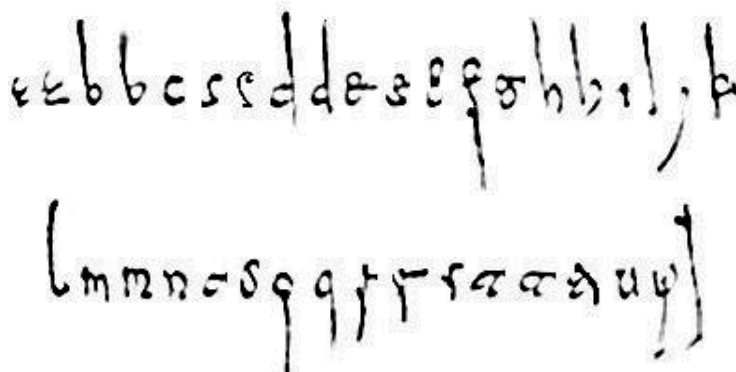 a a b b c c c d d e e e f g h h i i j k
l m m n o o p q r r s t t u